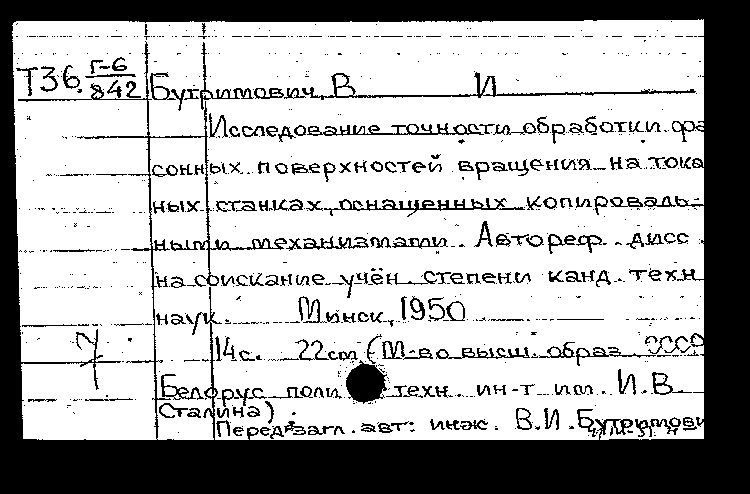 Т36 Г-6
842 Бутримович, В И
Исследование точности обработки фа
сонных поверхностей вращения на тока
ных станках, оснащенных копироваль-
ными механизмами. Автореф. дисс.
на соискание учён. степени канд. техн
наук. Минск, 1950
14с. 22см (М-во высш. образ. СССР
Белорус. поли техн. ин-т им. И.В.
Сталина).
Перед загл. авт: инж. В.И. Бутримови